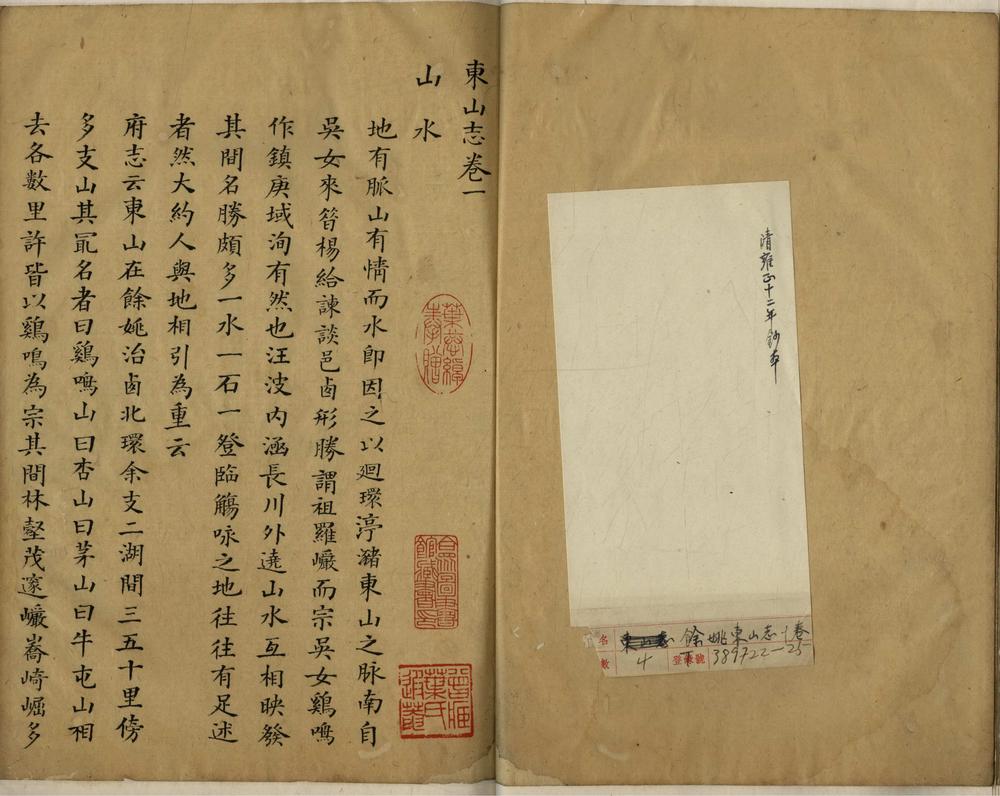 清雍正十二年鈔本
名 餘姚東山志十卷
數 4 登錄號 389722-25
東山志卷一
山水
地有脈山有情而水即因之以廻環渟瀦東山之脉南自
吳女來昝楊給諫談邑鹵形勝謂祖羅巗而宗吳女鷄鳴
作鎮庚域洵有然也汪波内涵長川外遶山水互相映發
其間名勝頗多一水一石一登臨觴咏之地往往有足述
者然大約人與地相引為重云
府志云東山在餘姚治鹵北環余支二湖間三五十里傍
多支山其冣名者曰鷄鳴山曰杏山曰茅山曰牛屯山相
去各數里許皆以鷄鳴為宗其間林壑茂邃巗嶅崎崛多
合眾圖書館藏書印